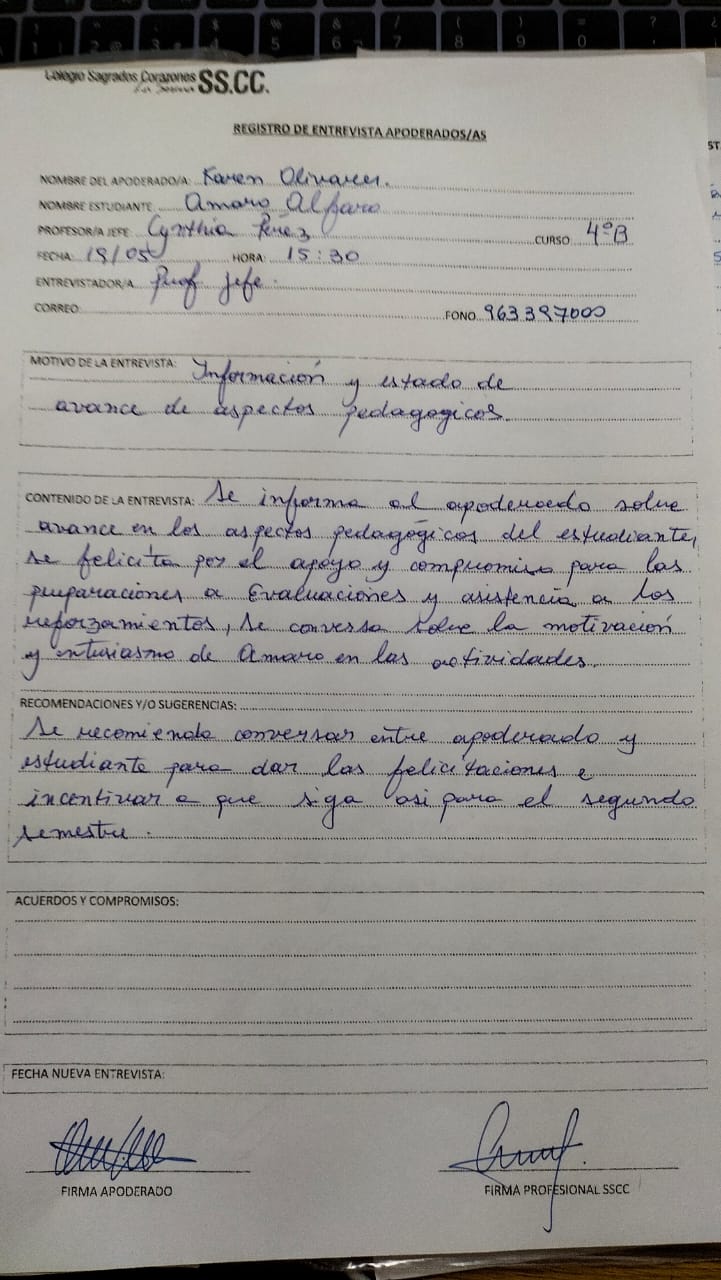 Colegio Sagrados Corazones SS.CC.
La Serena
REGISTRO DE ENTREVISTA APODERADOS/AS
NOMBRE DEL APODERADO/A: Karen Olivares.
NOMBRE ESTUDIANTE Amaro Alfaro
PROFESOR/A JEFE: Cynthia Pérez CURSO 4ºB
FECHA: 19/05 HORA: 15:30
ENTREVISTADOR/A Prof Jefe.
CORREO: FONO 963397000
MOTIVO DE LA ENTREVISTA: Información y estado de
avance de aspectos pedagogicos.
CONTENIDO DE LA ENTREVISTA: Se informa al apoderado sobre
avance en los aspectos pedagógicos del estudiante,
se felicita por el apoyo y compromiso para las
preparaciones a Evaluaciones y asistencia a los
reforzamientos, se conversa sobre la motivación
y entusiasmo de Amaro en las actividades.
RECOMENDACIONES Y/O SUGERENCIAS:
Se recomienda conversar entre apoderado y
estudiante para dar las felicitaciones e
incentivar a que siga asi para el segundo
semestre.
ACUERDOS Y COMPROMISOS:
FECHA NUEVA ENTREVISTA:
FIRMA APODERADO FIRMA PROFESIONAL SSCC